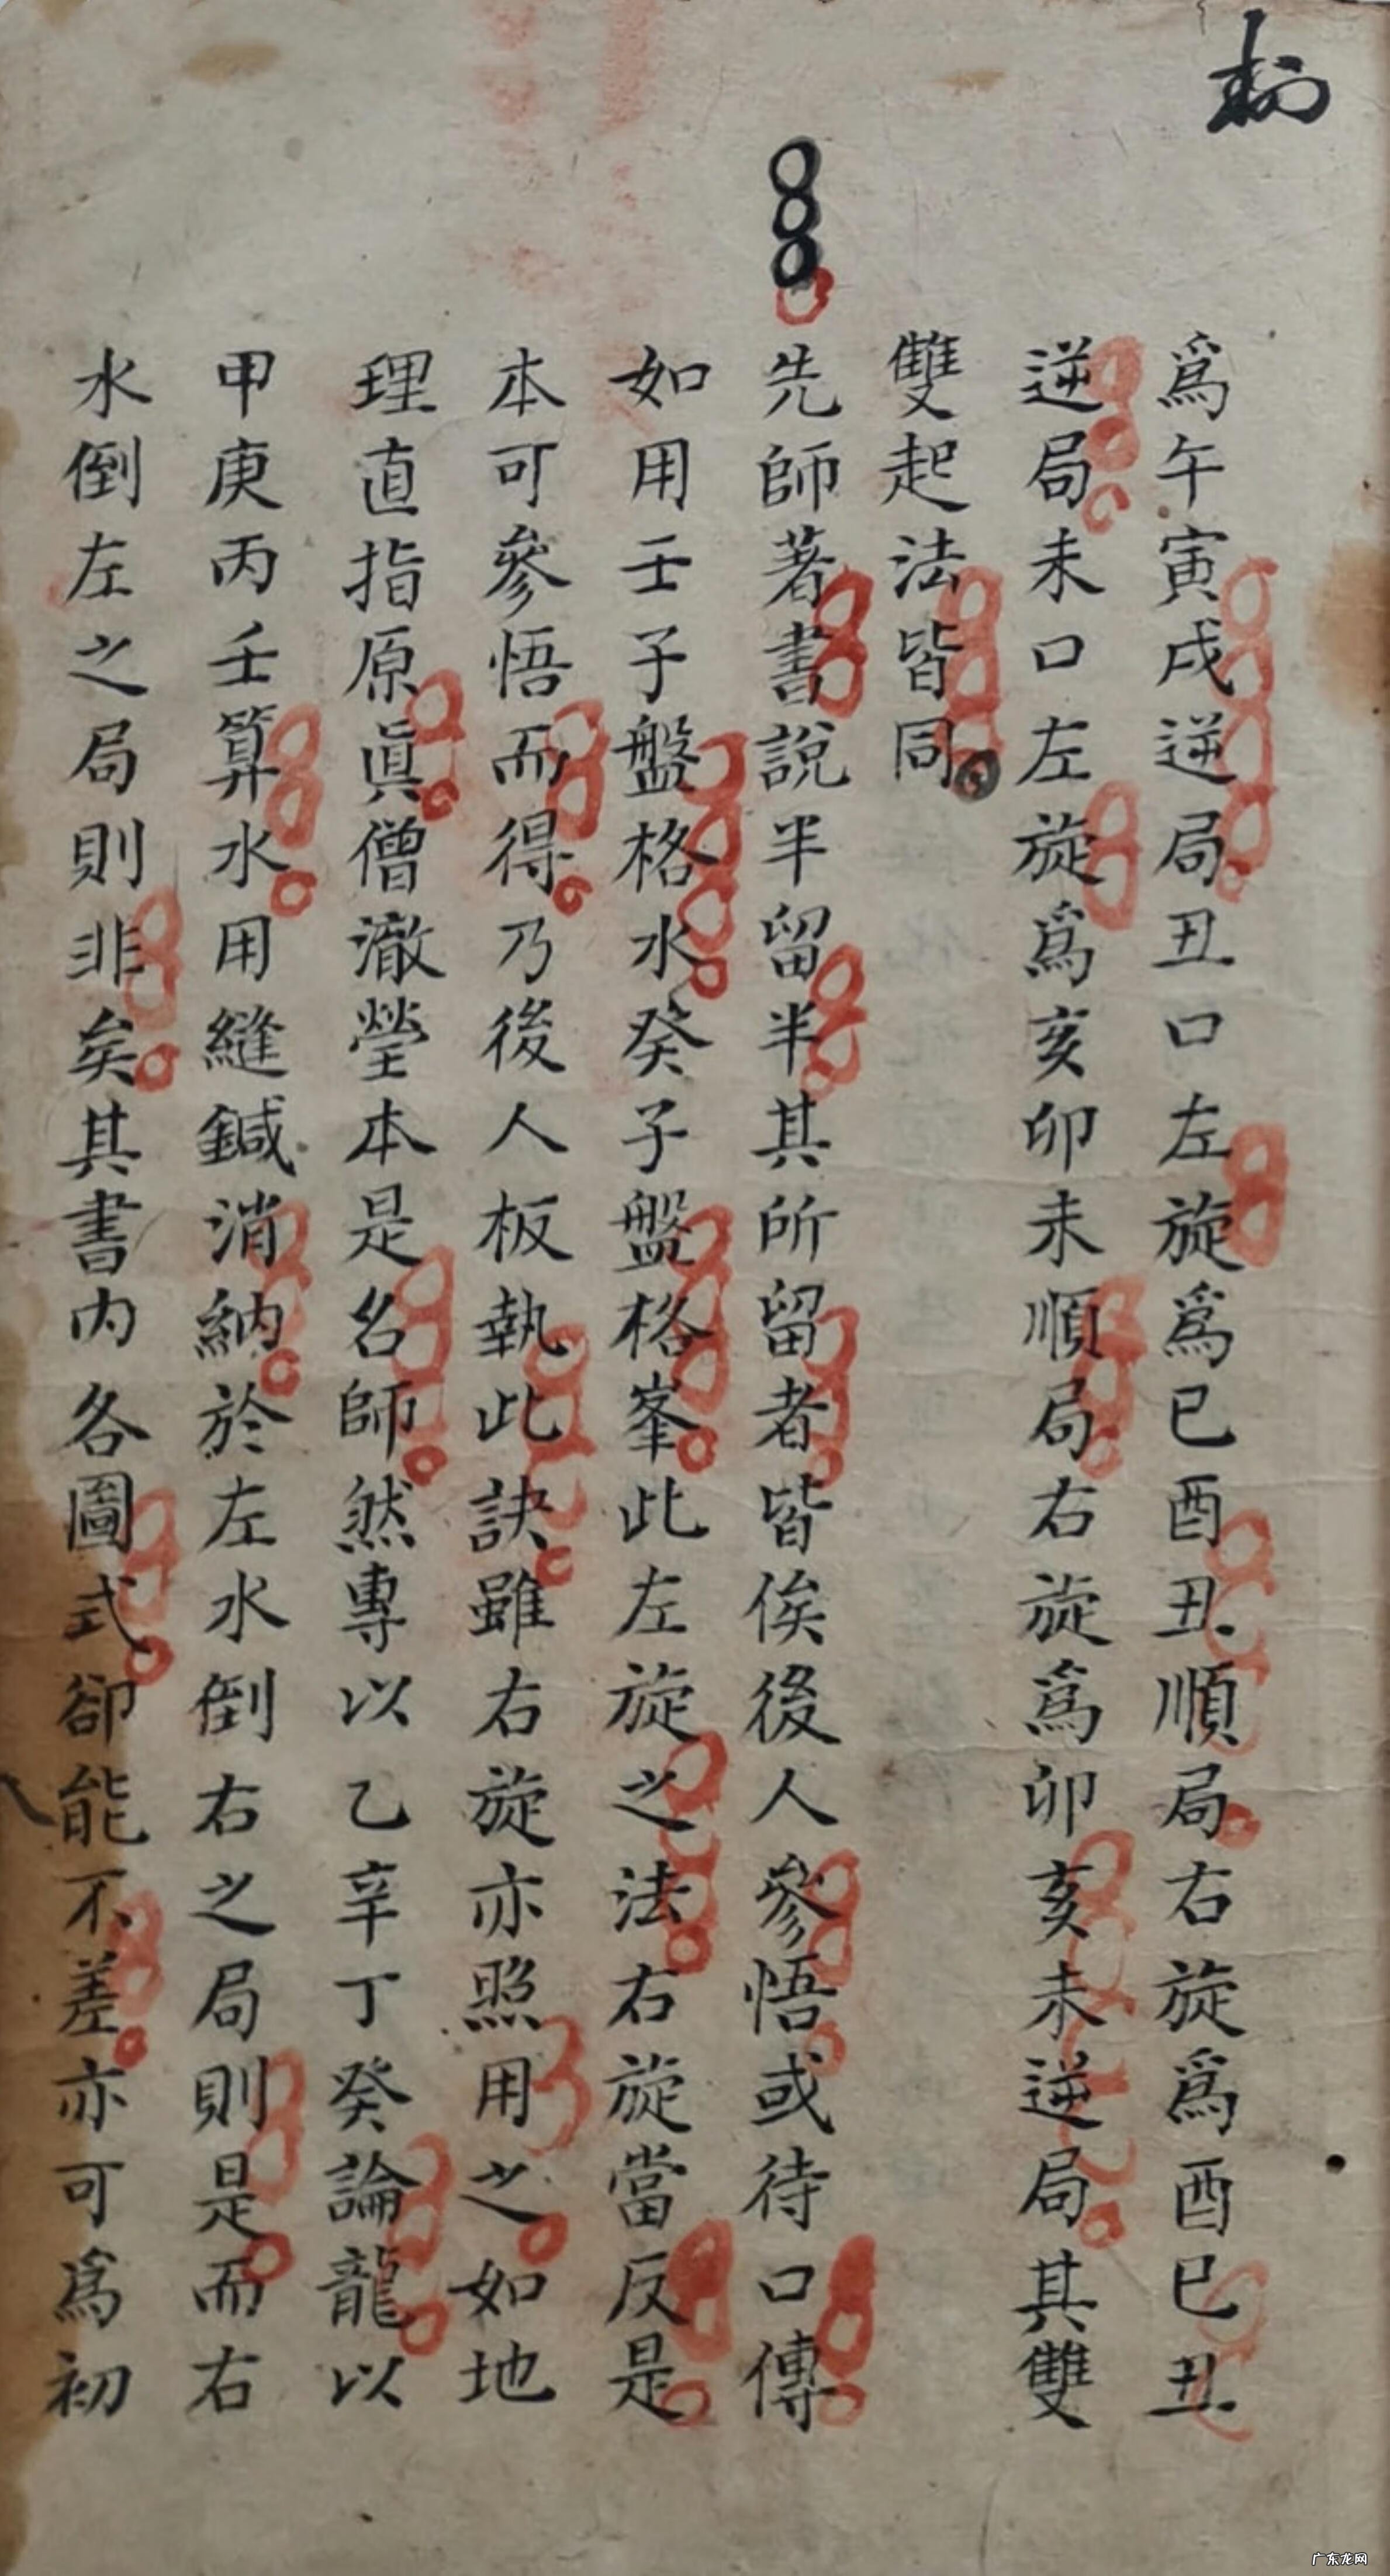 爲午寅戌逆局丑口左旋爲巳酉丑順局右旋爲酉巳丑
逆局未口左旋爲亥卯未順局右旋爲卯亥未逆局其雙
雙起法皆同
先師著書說半留半其所留者皆俟後人參悟或待口傳
如用壬子盤格水癸子盤格峯此左旋之法右旋當反是
本可參悟而得乃後人板執此訣雖右旋亦照用之如地
理直指原眞僧澈瑩本是名師然專以乙辛丁癸論龍以
甲庚丙壬算水用縫鍼消納於左水倒右之局則是而右
水倒左之局則非矣其書內各圖式卻能不差亦可爲初
广东龙网